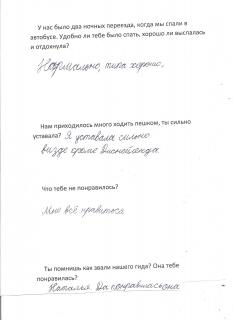 У нас было два ночных переезда, когда мы спали в
автобусе. Удобно ли тебе было спать, хорошо ли выспалась
и отдохнула?
Нармально, типа хорошо.
Нам приходилось много ходить пешком, ты сильно
уставала? Я уставала сильно
визде кроме Диснейленда
Что тебе не понравилось?
Мне всё нравиться
Ты помнишь как звали нашего гида? Она тебе
понравилась?
Наталья. Да понравиласьона